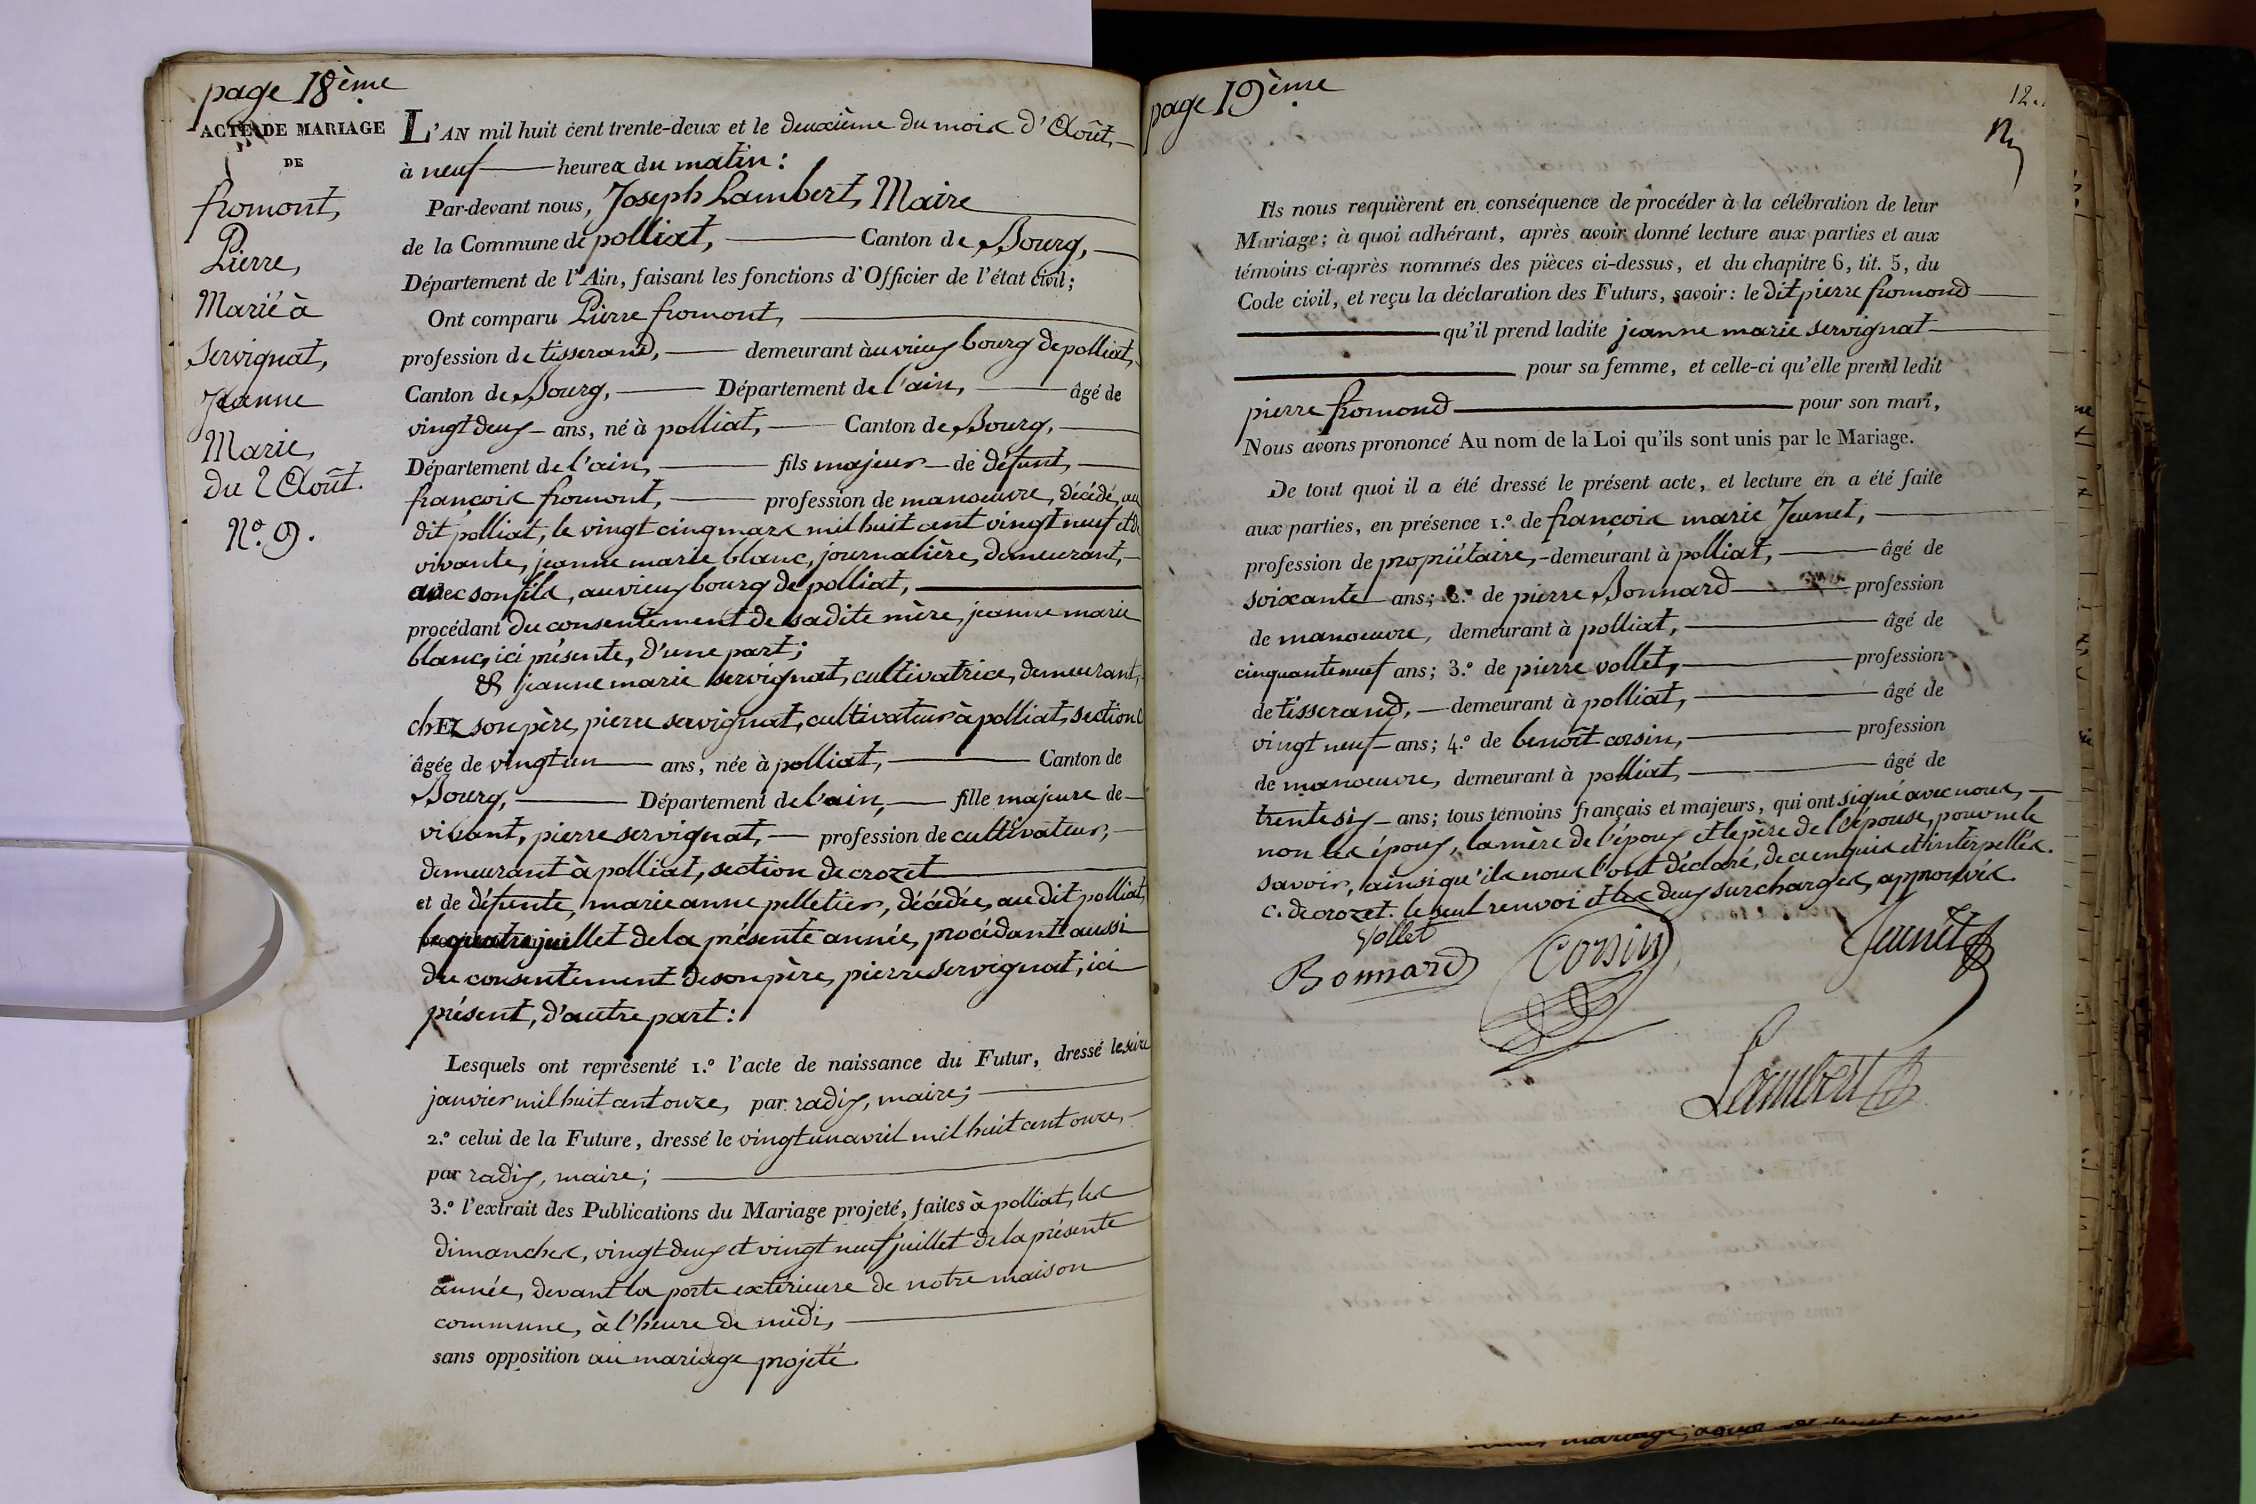 page 18ème
ACTE DE MARIAGE
DE
fromont,
Pierre,
Marié à
Servignat,
Jeanne
Marie,
du 2 Août.
N.º 9.
L'AN mil huit cent trente-deux et le deuxième du mois d'Août,
à neuf heures du matin :
Par-devant nous, Joseph Lambert, Maire
de la Commune de polliat, Canton de Bourg,
Département de l'Ain, faisant les fonctions d'Officier de l'état civil ;
Ont comparu Pierre fromont,
profession de tisserand, demeurant au vieux bourg de polliat,
Canton de Bourg, Département de l'ain, âgé de
vingt deux ans, né à polliat, Canton de Bourg,
Département de l'ain, fils majeur de défunt,
françois fromont, profession de manœuvre, décédé, au
dit polliat, le vingt cinq mars mil huit cent vingt neuf et de
vivante, jeanne marie blanc, journalière, demeurant,
avec son fils, au vieux bourg de polliat,
procédant du consentement de sadite mère, jeanne marie
blanc, ici présente, d'une part ;
& jeanne marie servignat, cultivatrice, demeurant,
chEz son père, pierre servignat, cultivateur à polliat, section C
âgée de vingt un ans, née à polliat, Canton de
Bourg, Département de l'ain, fille majeure de
vivant, pierre servignat, profession de cultivateur,
demeurant à polliat, section de crozet
et de défunte, marie anne pelletier, décédée, au dit polliat,
le quatre juillet de la présente année, procédant aussi
du consentement de son père, pierre servignat, ici
présent, d'autre part :
Lesquels ont représenté 1.º l'acte de naissance du Futur, dressé le seize
janvier mil huit cent onze, par radix, maire ;
2.º celui de la Future, dressé le vingt un avril mil huit cent onze,
par radix, maire ;
3.º l'extrait des Publications du Mariage projeté, faites à polliat, les
dimanches, vingt deux et vingt neuf juillet de la présente
année, devant la porte extérieure de notre maison
commune, à l'heure de midi,
sans opposition au mariage projeté.
page 19ème
12.
Ils nous requièrent en conséquence de procéder à la célébration de leur
Mariage ; à quoi adhérant, après avoir donné lecture aux parties et aux
témoins ci-après nommés des pièces ci-dessus, et du chapitre 6, tit. 5, du
Code civil, et reçu la déclaration des Futurs, savoir : le dit pierre fromond
qu'il prend ladite jeanne marie servignat
pour sa femme, et celle-ci qu'elle prend ledit
pierre fromond pour son mari,
Nous avons prononcé Au nom de la Loi qu'ils sont unis par le Mariage.
De tout quoi il a été dressé le présent acte, et lecture en a été faite
aux parties, en présence 1.º de françois marie Jeunet,
profession de propriétaire, demeurant à polliat, âgé de
soixante ans ; 2.º de pierre Bonnard profession
de manœuvre, demeurant à polliat, âgé de
cinquante neuf ans ; 3.º de pierre vollet, profession
de tisserand, demeurant à polliat, âgé de
vingt neuf ans ; 4.º de benoît corsin, profession
de manœuvre, demeurant à polliat, âgé de
trente six ans ; tous témoins français et majeurs, qui ont signé avec nous,
non les époux, la mère de l'époux et le père de l'épouse, pour ne le
savoir, ainsi qu'ils nous l'ont déclaré, de ce enquis et interpellés.
C. de crozet. le seul renvoi et les deux surcharges, approuvés.
Vollet
Bonnard Corsin Jeunet
Lambert